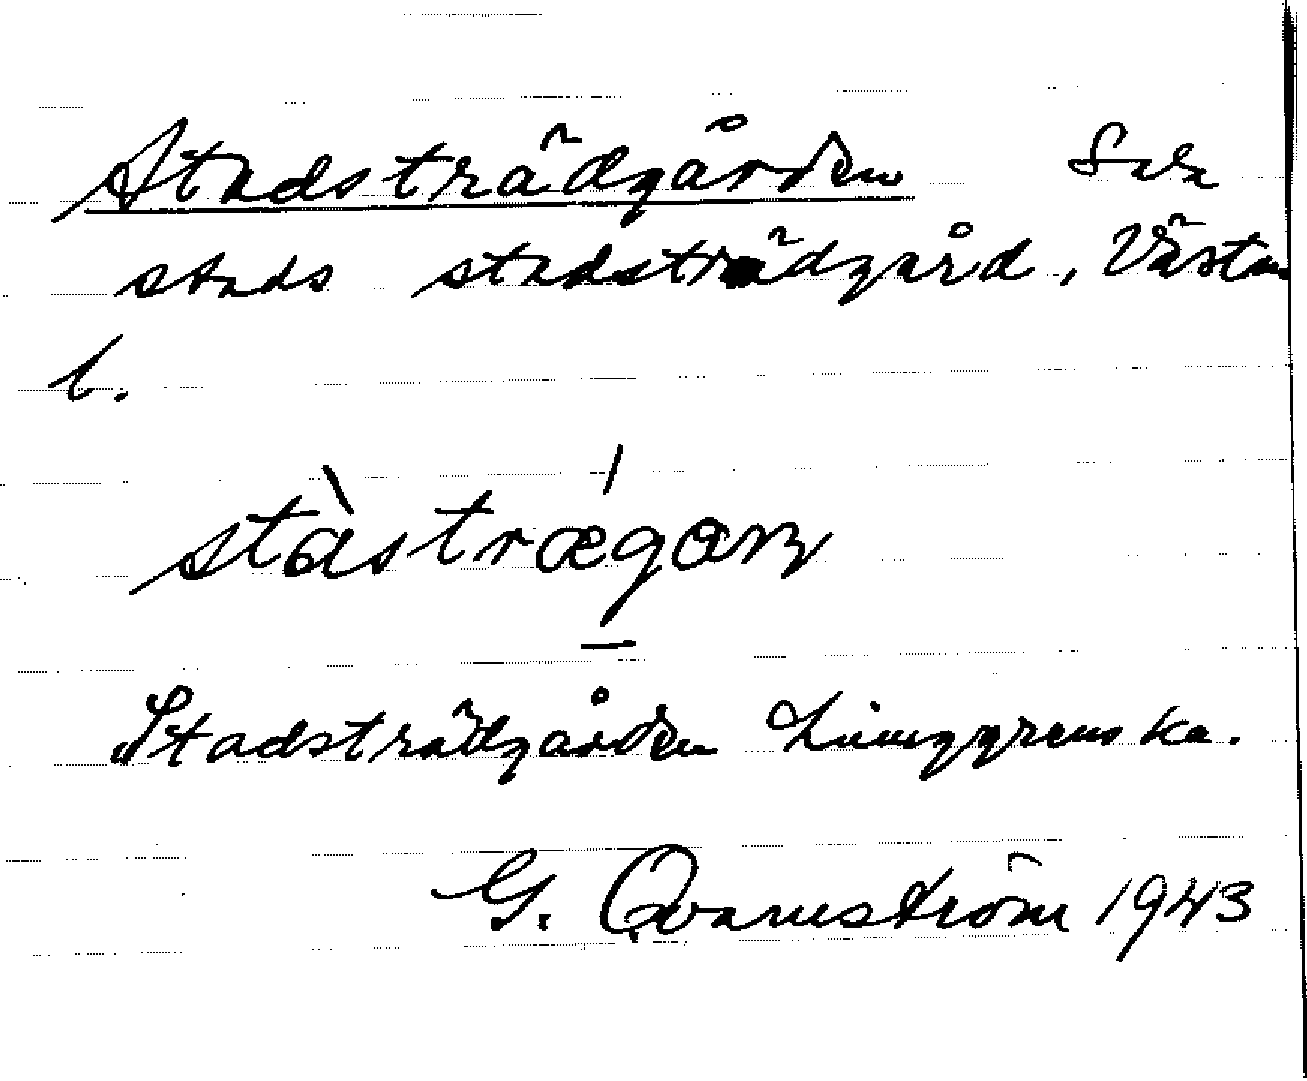 Stadsträdgården Sala
stads stadsträdgård, Västm.
l.
stàstrǽgaɳ
Stadsträdgården Ljunggrenska.
G. Qvarnström 1943